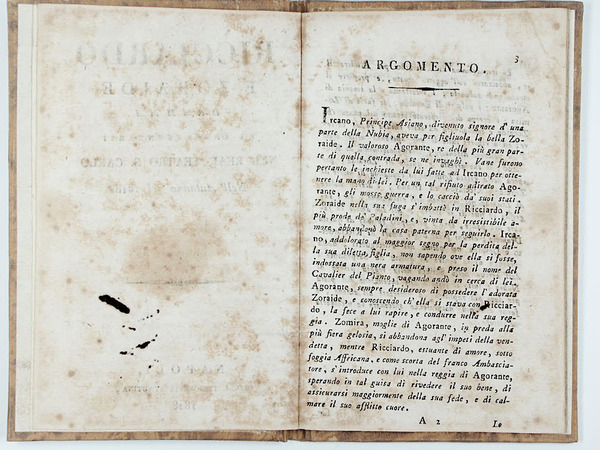 3
ARGOMENTO.
Ircano, Principe Asiano, divenuto signore d'una
parte della Nubia, aveva per figliuola la bella Zo-
raide. Il valoroso Agorante, re della più gran par-
te di quella contrada, se ne invaghì. Vane furono
pertanto le inchieste da lui fatte ad Ircano per otte-
nere la mano di lei. Per un tal rifiuto adirato Ago-
rante, gli mosse guerra, e lo cacciò da' suoi stati.
Zoraide nella sua fuga s'imbattè in Ricciardo, il
più prode de' Paladini, e, vinta da irresistibile a-
more, abbandonò la casa paterna per seguirlo. Irca-
no, addolorato al maggior segno per la perdita del-
la sua diletta figlia, non sapendo ove ella si fosse,
indossata una nera armatura, e preso il nome del
Cavalier del Pianto, vagando andò in cerca di lei.
Agorante, sempre desideroso di possedere l'adorata
Zoraide, e conoscendo ch'ella si stava con Ricciar-
do, la fece a lui rapire, e condurre nella sua reg-
gia. Zomira, moglie di Agorante, in preda alla
più fiera gelosia, si abbandona agl'impeti della ven-
detta, mentre Ricciardo, estuante di amore, sotto
foggia Affricana, e come scorta del franco Ambascia-
tore, s'introduce con lui nella reggia di Agorante,
sperando in tal guisa di rivedere il suo bene, di
assicurarsi maggiormente della sua fede, e di cal-
mare il suo afflitto cuore.
A 2
Lo